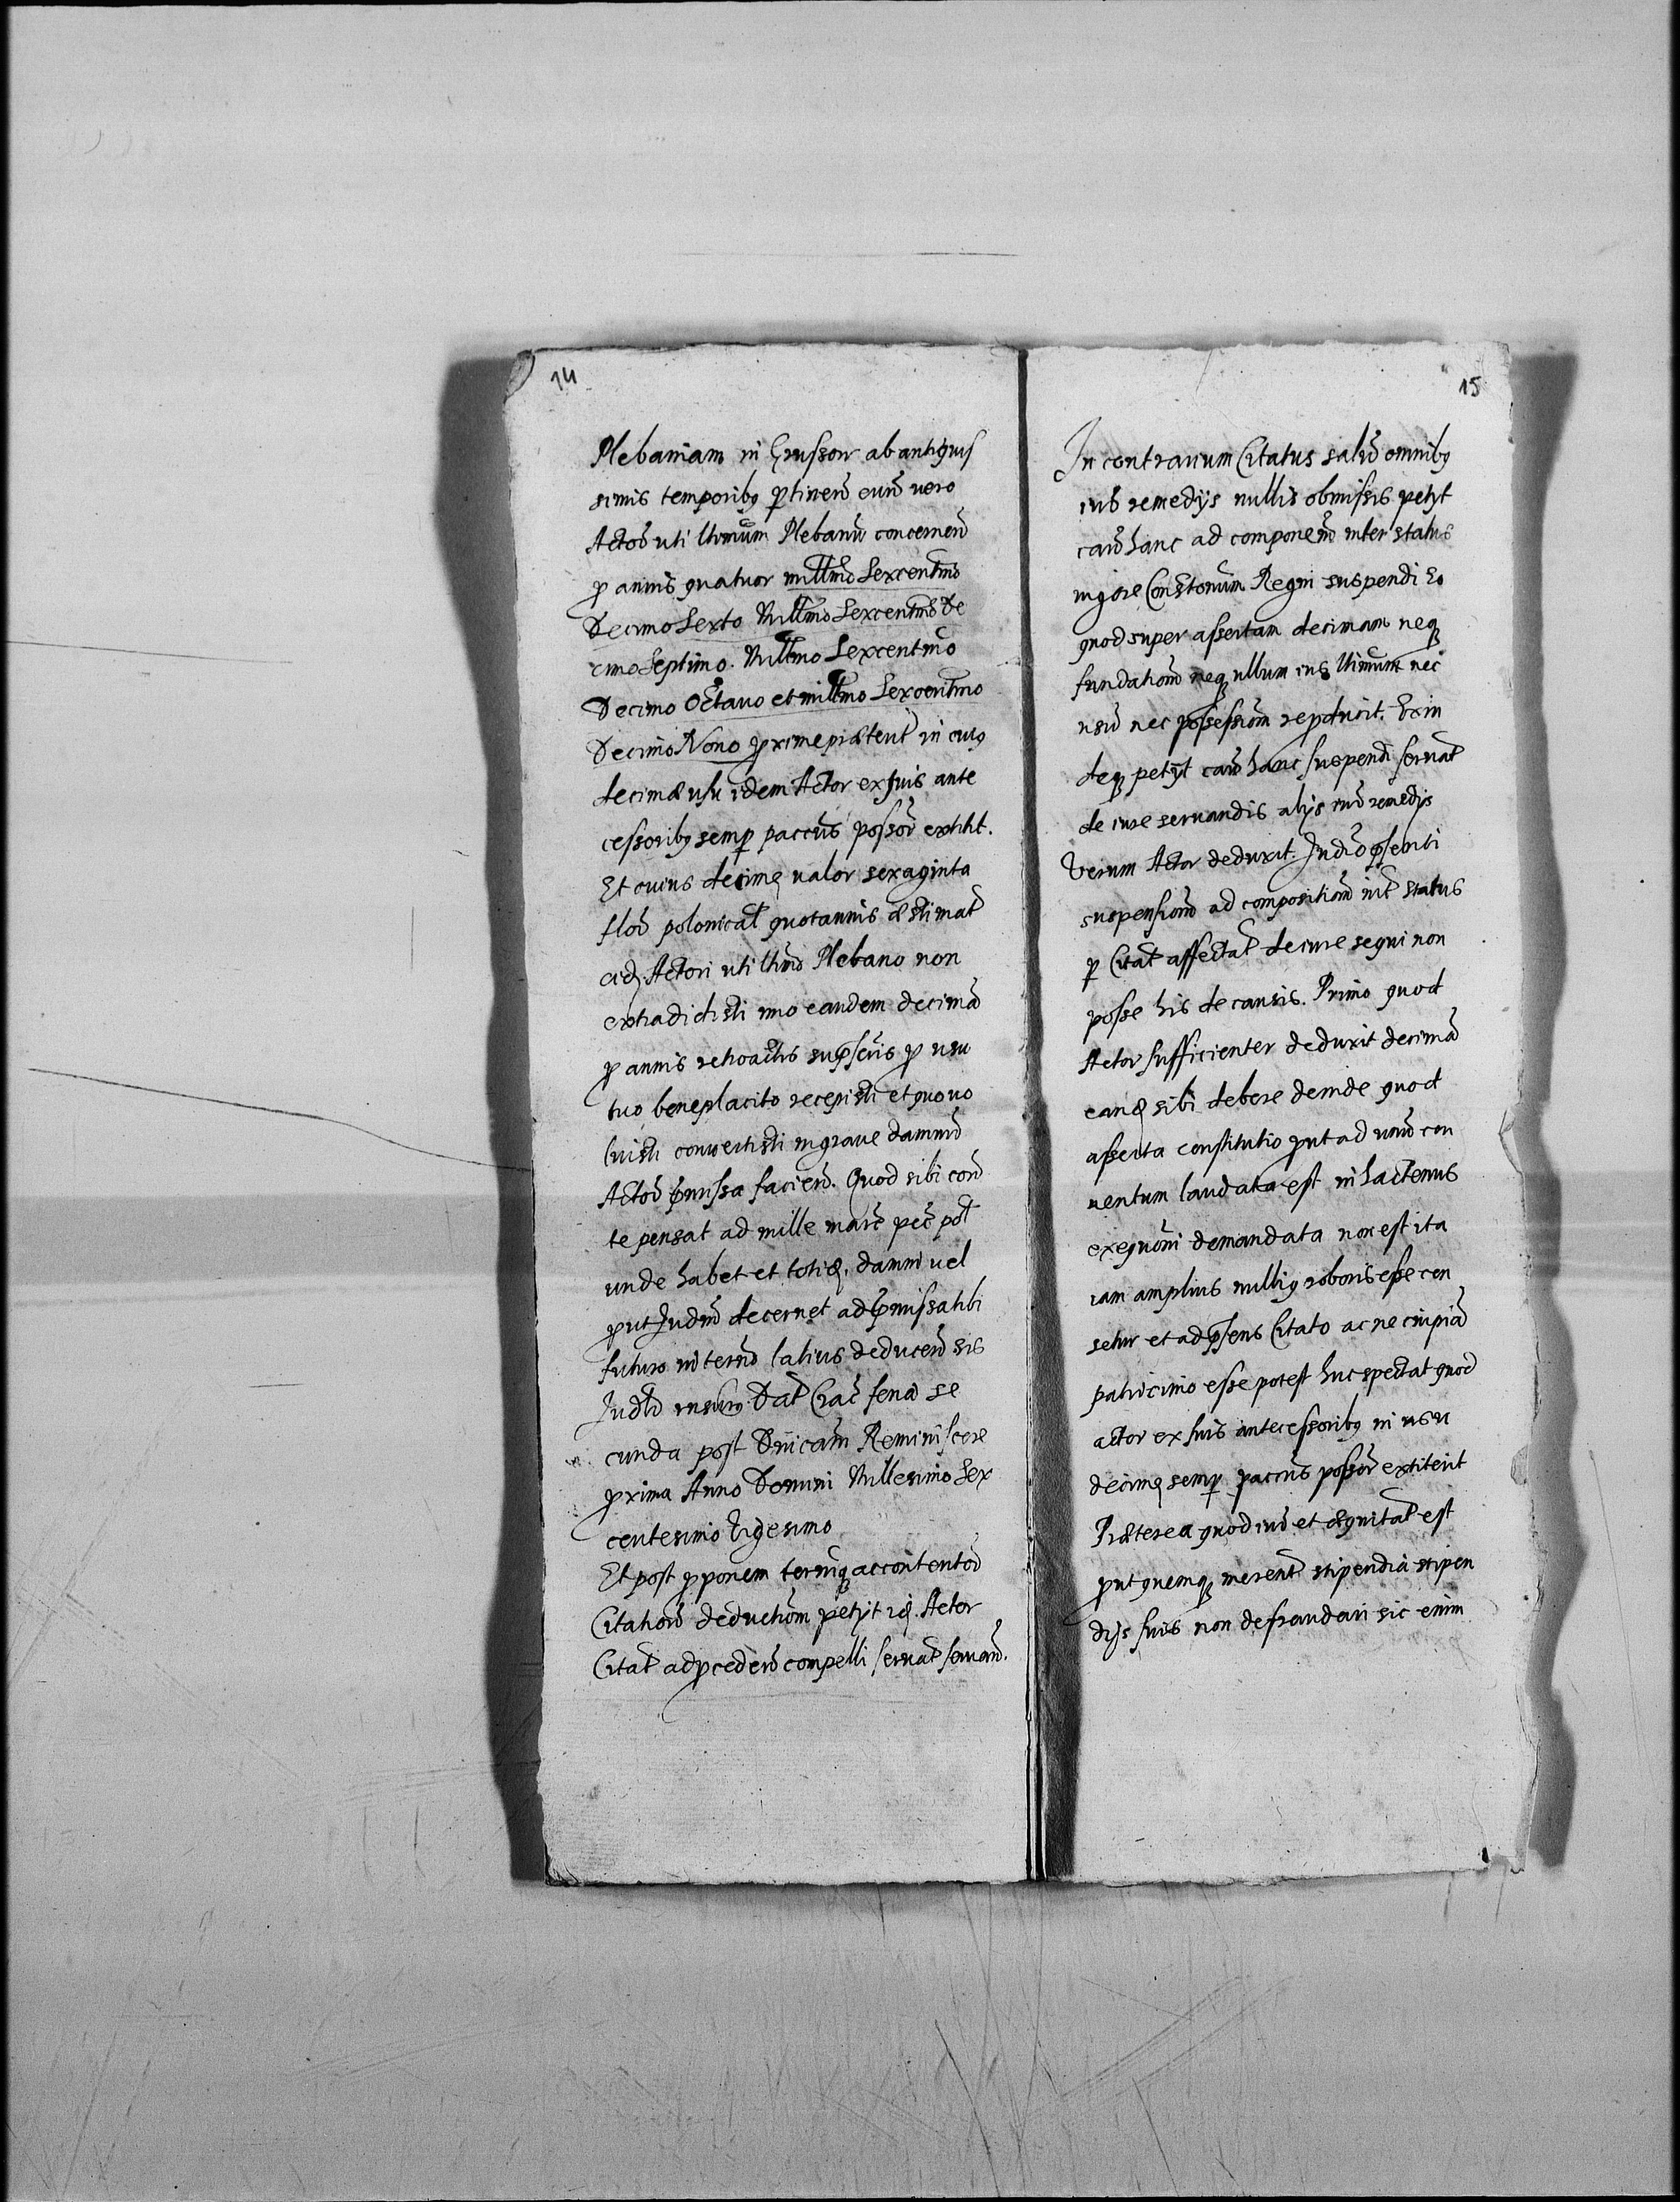 14
Plebaniam in Gzussow ab antiquis
simis temporibꝯ ꝑtineñ eum vero
Actoꝝ uti lṫimum Plebanū concerneñ
ꝓ annis quatuor millmo Sexcentmo
Decimo Sexto Millmo Sexcentmo De
cimo Septimo. Millmo Sexcentmo
Decimo Octauo et millmo Sexcentmo
Decimo Nono ꝓxime præterit̃ in cuiꝯ
decimæ usu idem Actor ex suis ante
cessoribꝯ semꝑ paccũs possõr extitit.
Et cuius decimę ualor sexaginta
floꝝ polonical̃ quotannis æstimat̃
eidꝫ Actori uti lṫimo Plebano non
extradidisti imo eandem decimã
ꝓ annis retroactis supsc̃ris ꝓ usu
tuo beneplacito recepisti et quo uo
luisti conuertisti in graue damnũ
Actoꝝ p̃missa facień. Quod sibi coñ
te pensat ad mille marc̃ pec̃ pol̃
unde habet et totidꝫ. damni uel
ꝓut Judm̃ decernet ad p̃missa tibi
futuro in termõ latius deducen̄ sis
Judlr̃ Dat̃ Crac̃ feria se
cunda post Dñicam Reminiscere
ꝓxima Anno Domini Millesimo Sex
centesimo Vigesimo
Et post ꝓponem termi accontentoꝝ
Citationis deductionem petyt idꝫ. Actor
Citat̃ ad ꝓcedeñ compelli seruat̃ seruañ.
15
In contrarium Citatus saluis omnibꝯ
iuris remedijs nullis obmissis petyt
cauš hanc ad componeñ inter status
uigore Consttonum Regni suspendi Eo
quod super assertam decimam neqꝫ
fundationem neqꝫ ullum ius lṫimum nec
usū nec possessionem reproducit. Exin
deqꝫ petijt cauš hanc suspendi seruat̃
de iure seruandis alijs iuris remedijs
Verum Actor deduxit. Judio p̃senti
suspensionem ad compositionem int̃ status
ꝑ Citat̃ affectat̃ de iure sequi non
posse his de causis. Primo quod
Actor sufficienter deduxit decimã
eandꝫ sibi debere deinde quod
asserta constitutio ꝓut ad unum con
uentum laudata est ni hactenus
exequoni demandata non est ita
iam amplius nulliꝯ roboris esse cen
setur et ad p̃sens Citato ac
patrocinio esse potest huc spectat quod
actor ex suis antecessoribꝯ in usu
decimę semꝑ paccũs possõr extiterit
Præterea quod iuris et æquitat̃ est
ꝓut quemqꝫ merent̃ stipendia stipen
dijs suis non defraudari sic enim